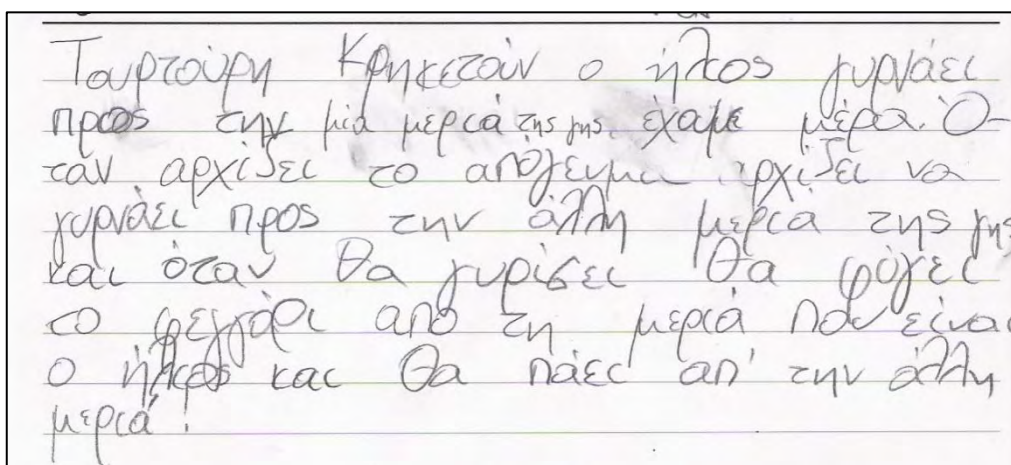 Ταυρτούρη Κρηκετάυν ο ήλιος γυρνάει
προς την μία μεριά της γης έχαμε μέρα. Ό-
ταν αρχίζει το απόγευμα αρχίζει να
γυρνάει προς την άλλη μεριά της γης
και όταν θα γυρίσει θα φύγει
το φεγγάρι από τη μεριά που είναι
ο ήλιος και θα πάει απ' την άλλη
μεριά!